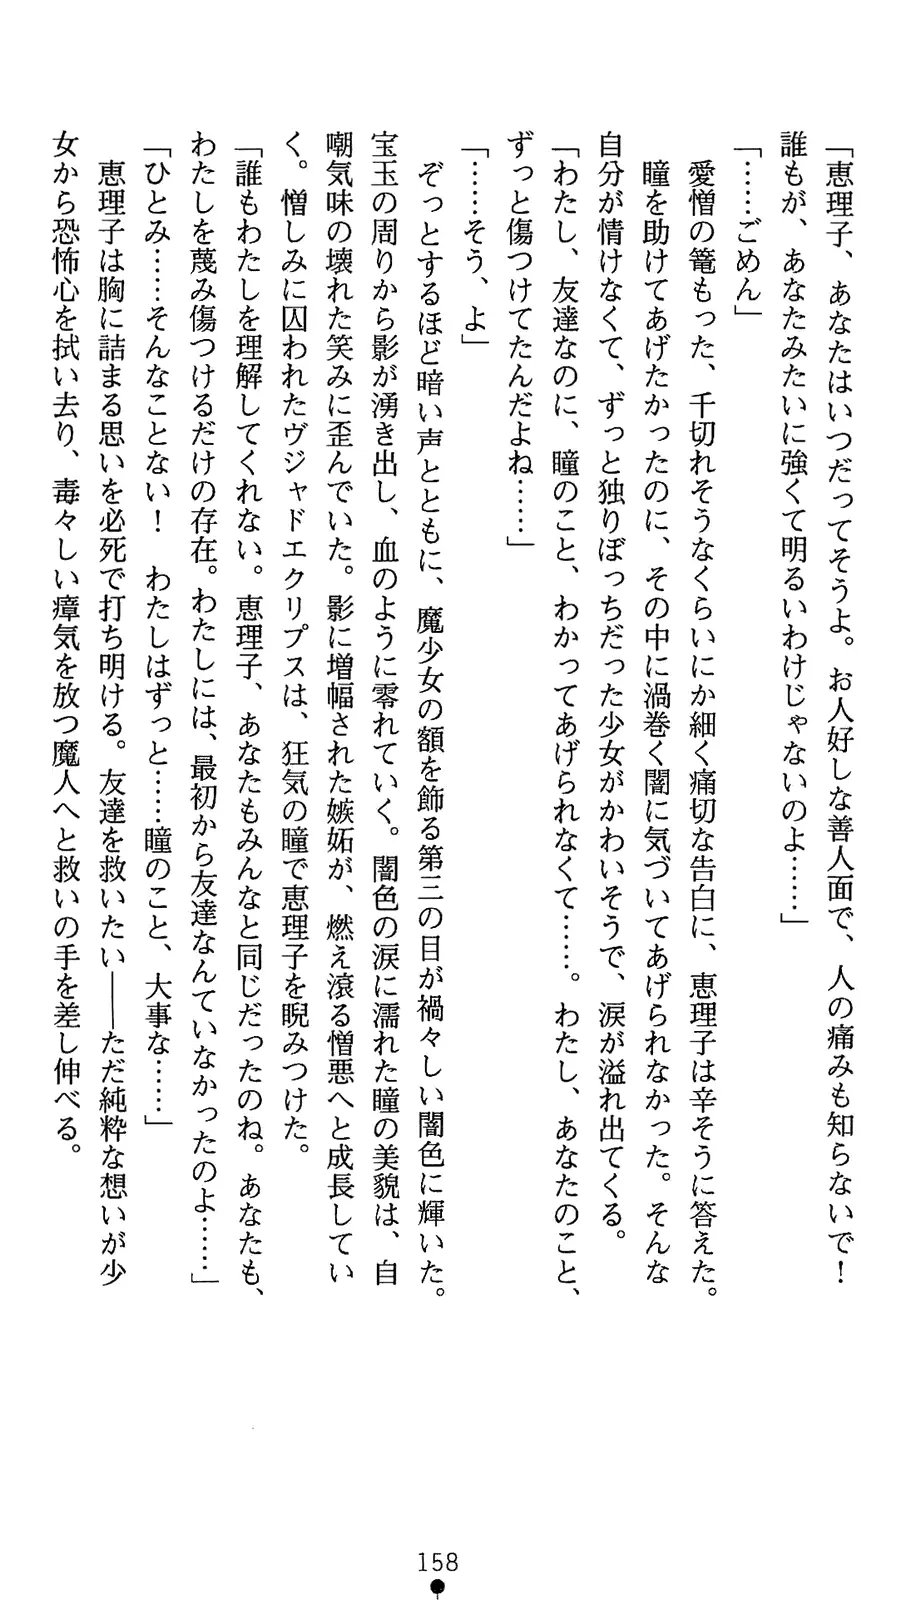 「恵理子、あなたはいつだってそうよ。お人好しな善人面で、人の痛みも知らないで！
誰もが、あなたみたいに強くて明るいわけじゃないのよ……」
「……ごめん」
　愛憎の篭もった、千切れそうなくらいにか細く痛切な告白に、恵理子は辛そうに答えた。
　瞳を助けてあげたかったのに、その中に渦巻く闇に気づいてあげられなかった。そんな
自分が情けなくて、ずっと独りぼっちだった少女がかわいそうで、涙が溢れ出てくる。
「わたし、友達なのに、瞳のこと、わかってあげられなくて……。わたし、あなたのこと、
ずっと傷つけてたんだよね……」
「……そう、よ」
　ぞっとするほど暗い声とともに、魔少女の額を飾る第三の目が禍々しい闇色に輝いた。
宝玉の周りから影が湧き出し、血のように零れていく。闇色の涙に濡れた瞳の美貌は、自
嘲気味の壊れた笑みに歪んでいた。影に増幅された嫉妬が、燃え滾る憎悪へと成長してい
く。憎しみに囚われたヴジャドエクリプスは、狂気の瞳で恵理子を睨みつけた。
「誰もわたしを理解してくれない。恵理子、あなたもみんなと同じだったのね。あなたも、
わたしを蔑み傷つけるだけの存在。わたしには、最初から友達なんていなかったのよ……」
「ひとみ……そんなことない！　わたしはずっと……瞳のこと、大事な……」
　恵理子は胸に詰まる思いを必死で打ち明ける。友達を救いたい――ただ純粋な想いが少
女から恐怖心を拭い去り、毒々しい瘴気を放つ魔人へと救いの手を差し伸べる。
158